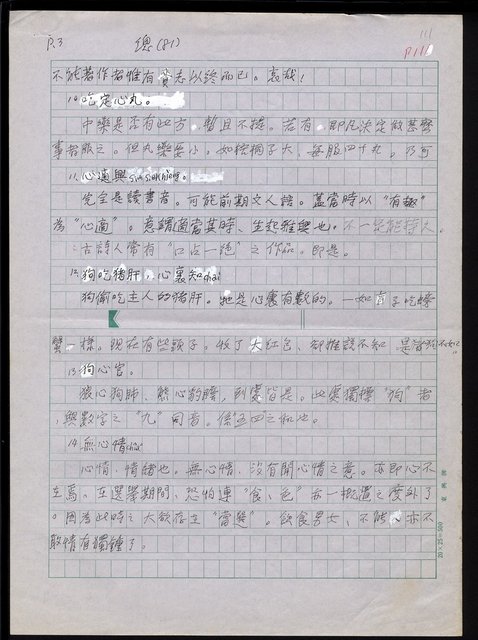 P.3 總(81)
111
P111
不能著作者惟有賫志以終而已。哀哉!
10.吃定心丸。
中藥是否有此方,暫且不談。若有,即凡決定做某
事者服之。但丸藥要小,如梧桐子大,每服四十丸,乃可
11.心適興
完全是讀書音。可能前期文人語。蓋當時以"有趣"
為"心適"。意謂適當其時、生起雅興也。不一定能持久。
古詩人常有"口占一絕"之作品。即是。
12.狗吃豬肝,心裏知
狗偷吃主人的豬肝。牠是心裏有數的。一如子吃螃
蟹一樣。現在有些頭子。收了大紅包、卻推說不知
13.狗心宮。
狼心狗肺、熊心豹膽,到處皆是。此處獨標"狗"者
,與數字之"九"同音。係五四之和也。
14.無心情
心情,情緒也。無心情、沒有開心情之意。亦即心不
在焉。在選舉期間、恐怕連"食、色"亦一概置之度外了
。因為此時之大欲存在"當選"。飲食男女、不能亦不
敢情有獨鍾了。
20×25=500